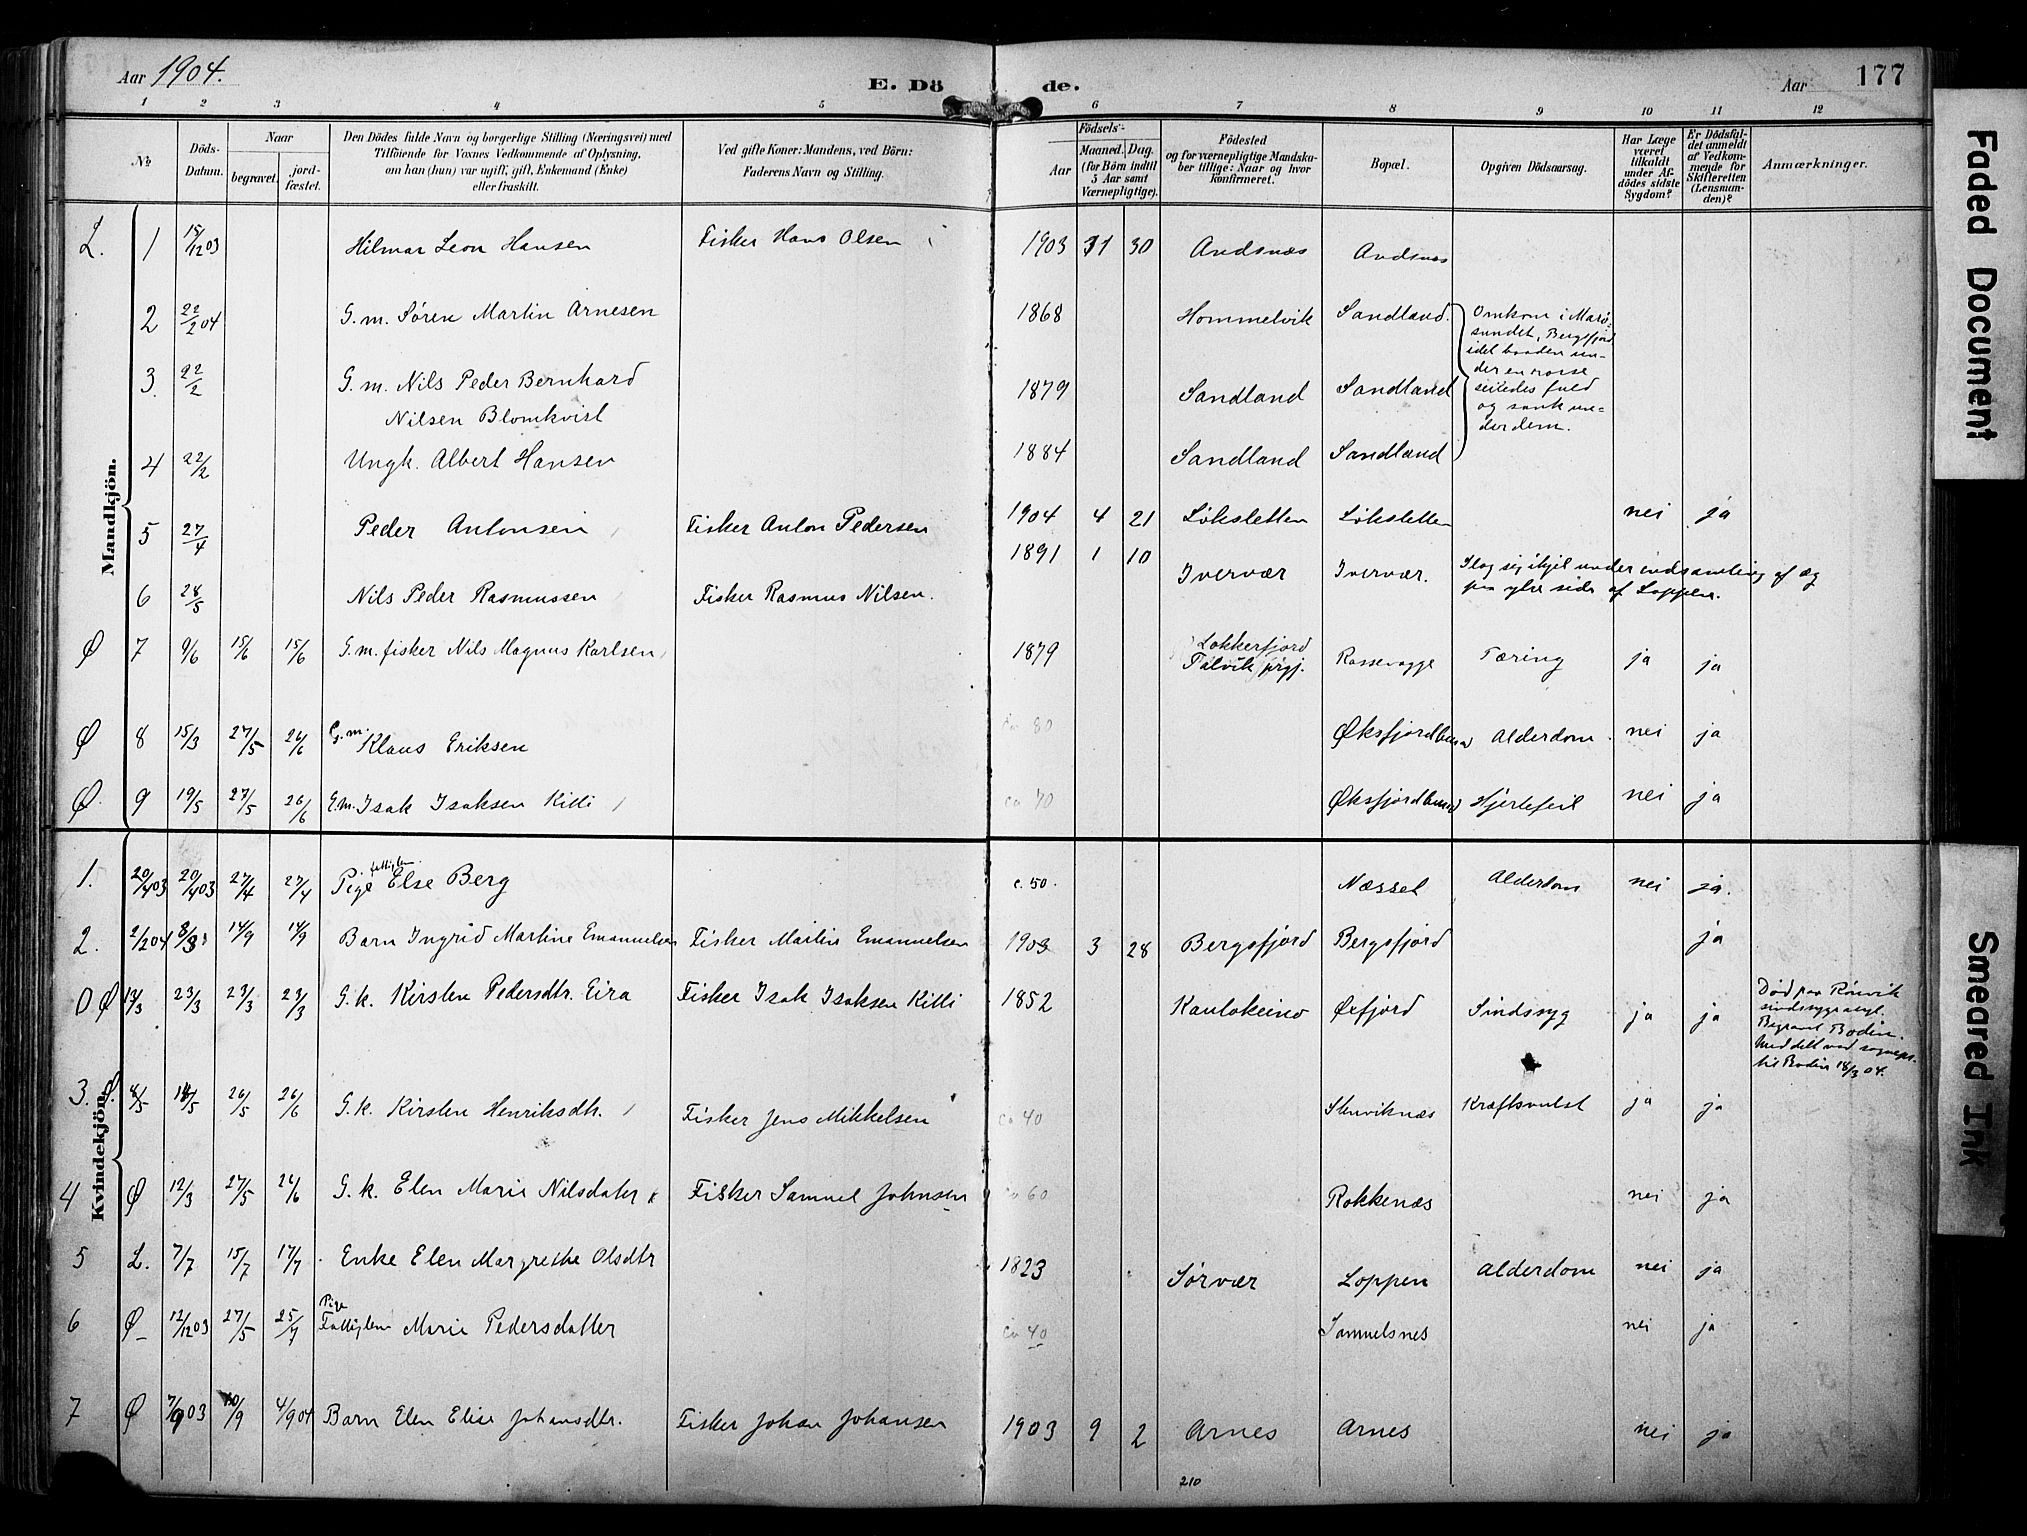 Aar 1904.
E. Dö de.
Aar 177
1 2 3 4 5 6 7 8 9 10 11 12
No
Döds-Datum.
Naar
begravet.
jord-fæstet.
Den Dödes fulde Navn og borgerlige Stilling (Næringsvei) med
Tilföiende for Voxnes Vedkommende af Oplysning,
om han (hun) var ugift, gift, Enkemand (Enke)
eller fraskilt.
Ved gifte Koner: Mandens, ved Börn:
Faderens Navn og Stilling.
Födsels-
Aar
Maaned. Dag.
(for Börn indtil
5 Aar samt
Værnepligtige).
Födested
og for værnepligtige Mandska-
ber tillige: Naar og hvor
konfirmeret.
Bopæl.
Opgiven Dödsaarsag.
Har Læge
været
tilkaldt
under Af-
dödes sidste
Sygdom?
Er Dödsfal-
det anmeldt
af Vedkom-
mende for
Skifteretten
(Lensman-
den)?
Anmærkninger.
Mandkjön.
L. 1 15/12 03 Hilmar Leon Hansen Fisker Hans Olsen 1903 31 30 Andsnæs Andsnæs
2 22/2 04 G.m. Søren Martin Arnesen 1868 Hommelvik Sandland.
Omkom i Marø-
sundet, Bergsfjord
idet baaden un-
der en rosse
seiledes fuld
og sank un-
der dem.
3. 22/2 G.m. Nils Peder Bernhard
Nilsen Blomkvist 1879 Sandland Sandland
4 22/2 Ungk. Albert Hansen 1884 Sandland Sandland
5 27/4 Peder Antonsen Fisker Anton Pedersen 1904 4 21 Løksletten Løksletten nei ja
6 28/5 Nils Peder Rasmussen Fisker Rasmus Nilsen. 1891 1 10 Ivervær Ivervær. Slog sig ihjel under indsamling af æg
paa ytre side af Loppen.
Ø 7 9/6 15/6 15/6 G.m. fisker Nils Magnus Karlsen 1879 Lokkerfjord
Talvik prgj. Rassevagge Tæring ja ja
Ø 8 15/3 27/5 26/6 G.m. Klaus Eriksen ca 80 Øksfjordbund Alderdom nei ja
Ø. 9 19/5 27/5 26/6 E.m. Isak Isaksen Kitti ca 70 Øksfjordbund Hjertefeil nei ja
Kvindekjön.
1. 20/4 03 20/4 03 27/4 27/4 Pige fattiglem Else Berg c. 50. Næsset Alderdom nei ja.
2. 2/2 04 8/3 14/9 14/9 Barn Ingrid Martine Emanuelsen Fisker Martin Emanuelsen 1903 3 28 Bergsfjord Bergsfjord ja
0 Ø 13/3 23/3 23/3 23/3 G.k. Kirsten Pedersdtr. Eira Fisker Isak Isaksen Kitti 1852 Kautokeino Øxfjord Sindssyg ja ja
Död paa Rönvik
sindssygeasyl.
Begravet Bodin.
Meddelt ved sognepr.
til Bodin 18/3 04.
3. Ø. 4/5 14/5 26/5 26/6 G.k. Kirsten Henriksdtr. Fisker Jens Mikkelsen ca 40 Stenviknæs Kræftsvulst ja ja
4 Ø 12/3 27/5 26/6 G.k. Elen Marie Nilsdater Fisker Samuel Johnsen ca 60 Rokkenæs nei ja
5 L. 7/7 15/7 17/7 Enke Elen Margrethe Olsdtr 1823 Sørvær Loppen Alderdom nei ja
6 Ø 12/12 03 27/5 25/7 Pige
Fattiglem Marie Pedersdatter ca 40 Samuelsnes nei ja
7 Ø 7/9 03 10/9 4/9 04 Barn Elen Elise Johansdtr. Fisker Johan Johansen 1903 9 2 Arnes Arnes nei ja
210
Faded Document
Smeared Ink